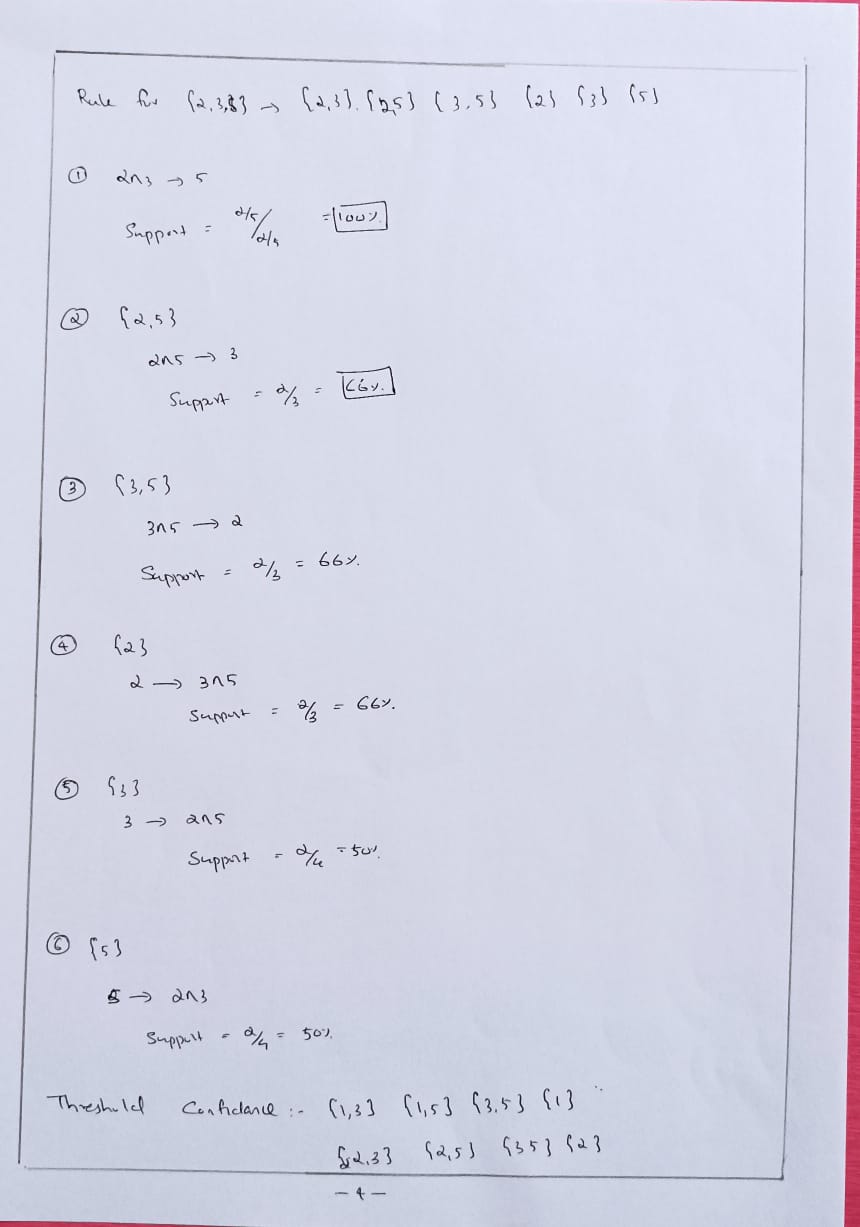 Rule for {2,3,5} → {2,3}. {2,5} {3,5} {2} {3} {5}
① 2∩3 → 5
Support = 2/5 / 2/5 = 100%
② {2,5}
2∩5 → 3
Support = 2/3 = 66%.
③ {3,5}
3∩5 → 2
Support = 2/3 = 66%.
④ {2}
2 → 3∩5
Support = 2/3 = 66%.
⑤ {3}
3 → 2∩5
Support = 2/4 = 50%.
⑥ {5}
5 → 2∩3
Support = 2/4 = 50%.
Threshold Confidance :- {1,3} {1,5} {3,5} {1}
{2,3} {2,5} {3 5} {2}
- 4 -